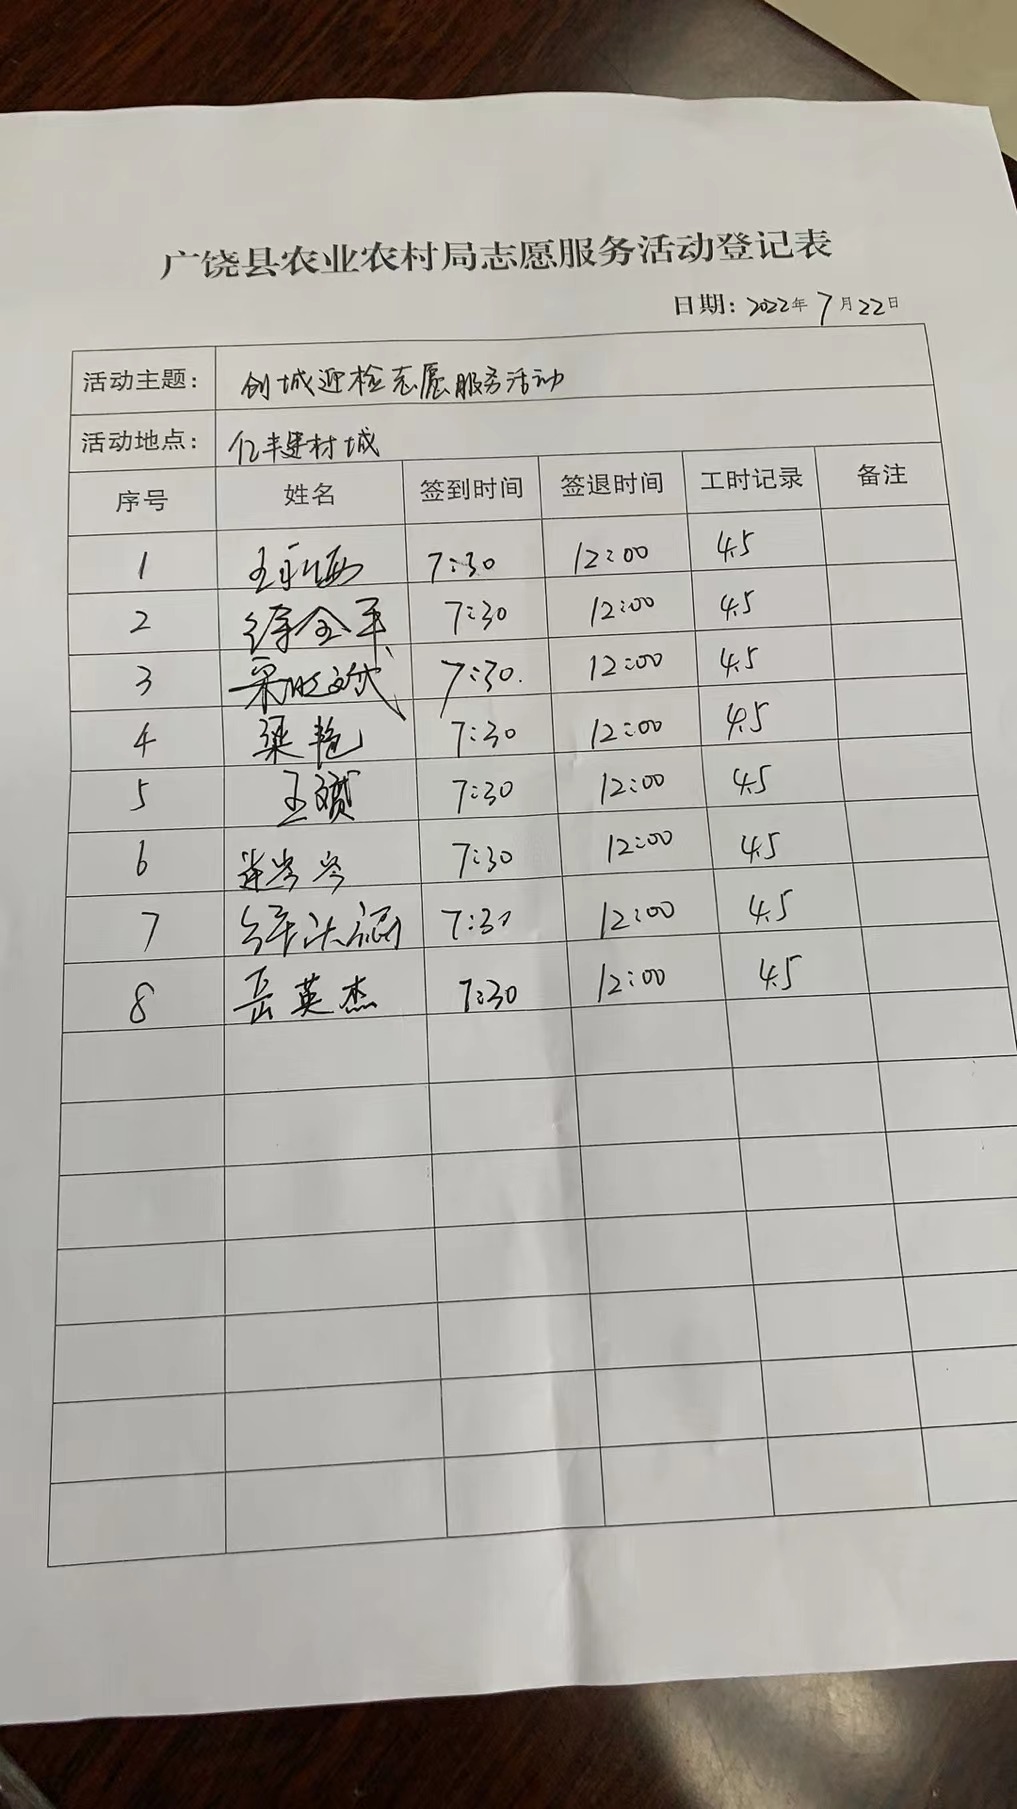 广饶县农业农村局志愿服务活动登记表
日期: 2022年 7月22日
活动主题: 创城迎检志愿服务活动
活动地点: 亿丰建材城
序号 姓名 签到时间 签退时间 工时记录 备注
1 7:30 12:00 4.5
2 徐全平 7:30 12:00 4.5
3 7:30. 12:00 4.5
4 梁艳 7:30 12:00 4.5
5 王斌 7:30 12:00 4.5
6 7:30 12:00 4.5
7 7:30 12:00 4.5
8 岳英杰 7:30 12:00 4.5